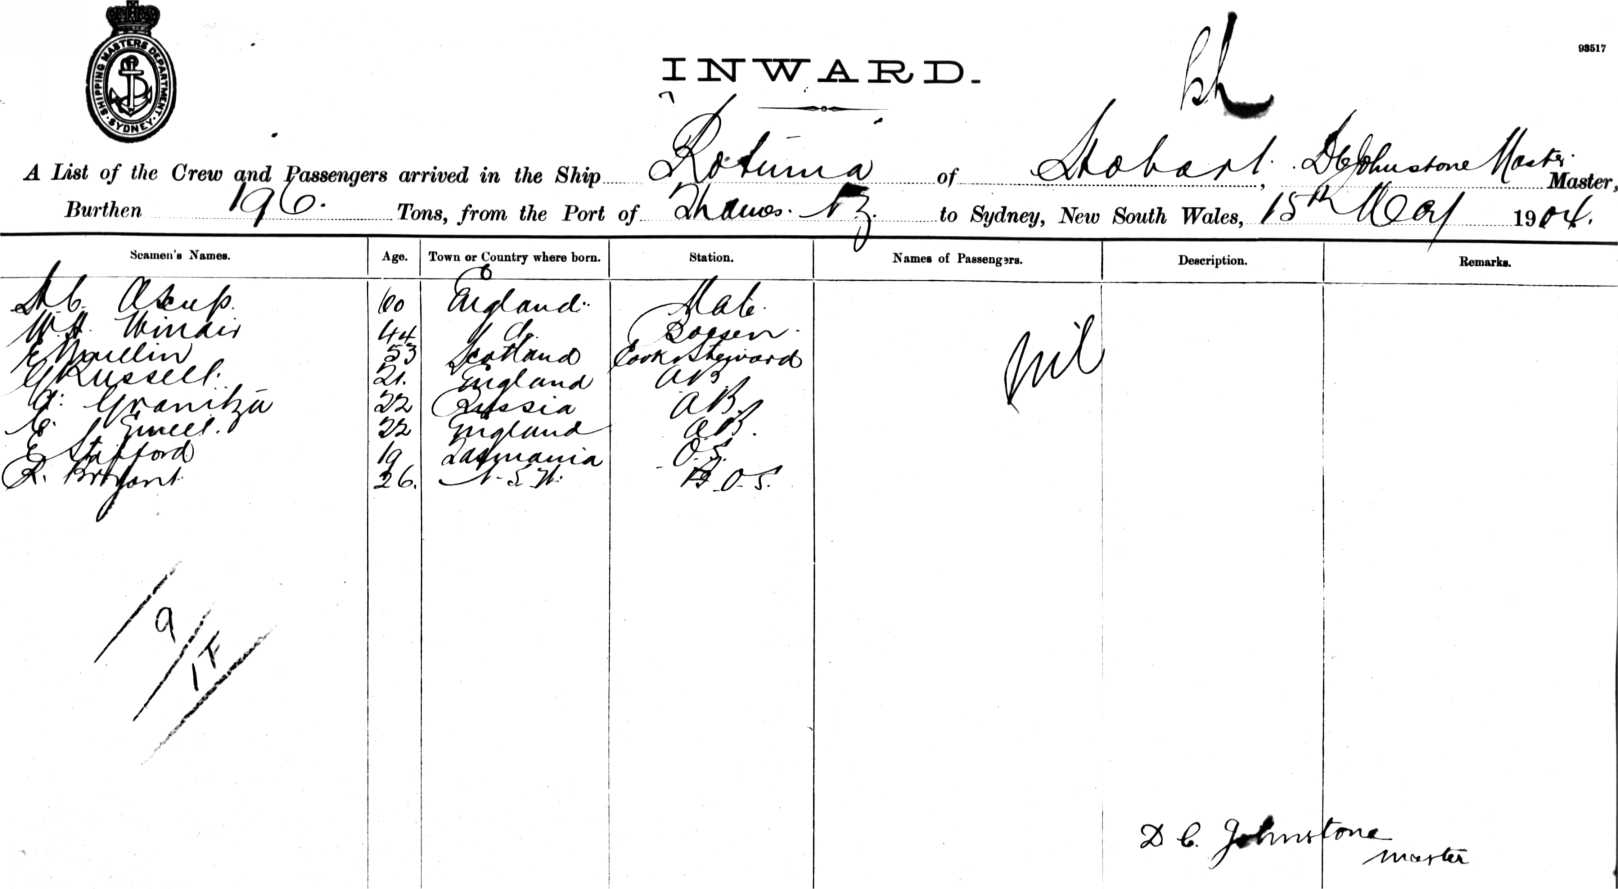 SHIPPING MASTERS DEPARTMENT
SYDNEY
93517
INWARD.
A List of the Crew and Passengers arrived in the Ship Rotuma of Hobart, D C Johnstone Master Master,
Burthen 196. Tons, from the Port of Thames. NZ. to Sydney, New South Wales, 15th May 1904.
Seamen's Names. Age. Town or Country where born. Station. Names of Passengers. Description. Remarks.
60 England Mate
W.H. 44 Do. Boesen
53 Scotland Cook & Steward
G Russell. 21. England AB
Granitza 22 Russia AB.
22 England AB.
E Stafford 19 Tasmania O.S.
R. Bryant 26. N.S.W. O.S.
nil
9
1F
D C. Johnstone
master